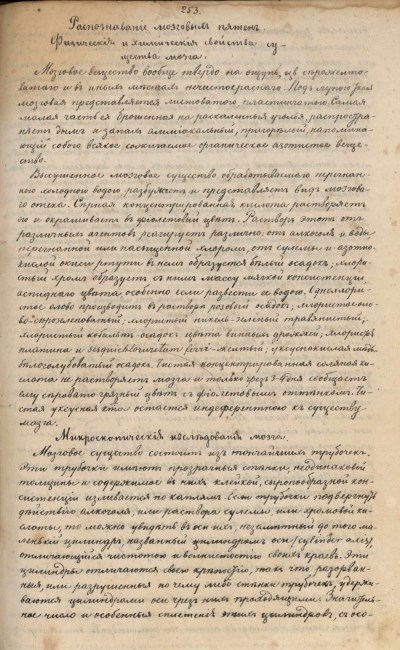 253.
Распознаваніе мозговыхъ пятенъ.
Физическія и химическія свойства су-
щества мозга.
Мозговое вещество вообще твердо на ощупь, цв. сѣрожелто-
ватаго и въ иныхъ мѣстахъ нечистокраснаго. Подъ лупою
мозговая представляется листоватою, пластинчатою. Самая
малая часть ея брошенная на раскаленныя уголья, распростра-
няетъ дымъ и запахъ алліакальный, пригорѣлый, напомина-
ющій собою всякое сожигаемое органическое азотистое веще-
ство.
Высушенное мозговое существо, обработываемое переган-
ною холодною водою, разбухаетъ и представляетъ видъ мозгова-
го отека. Сѣрная концентрированная кислота растворяетъ
его и окрашиваетъ въ фіолетовый цвѣтъ. Растворъ этотъ отъ
различныхъ агентовъ реагируетъ различно: отъ алкоголя и воды
перегнанной или насыщенной хлоромъ, отъ сулемы и азотно-
кислой окиси ртути въ немъ образуется бѣлый осадокъ; хлори-
стый хромъ образуетъ съ нимъ массу мягкой консистенціи
аспиднаго цвѣта, особенно если развести ее водою. Однохлори-
стое олово производитъ въ растворѣ розовый осадокъ; хлористое
хлористый никель-зеленый травянистый;
хлористый кобальтъ-осадокъ цвѣта винныхъ дрожжей; хлористая
платина и желтый; уксуснокислая мѣдь
бѣлоголубоватый осадокъ. Чистая концентрированная соляная ки-
слота не растворяетъ мозга и только чрезъ 3-4 дня сообщаетъ
ему сѣровато-грязный цвѣтъ съ фіолетовымъ оттѣнкомъ. Чи-
стая уксусная к-та остается индеферентною къ существу
мозга.
Микроскопическія изслѣдованія мозга.
Мозговое существо состоитъ изъ тончайшихъ трубочекъ.
Эти трубочки имѣютъ прозрачныя стѣнки, неодинаковой
толщины и содержимое въ нихъ клейкой, сиропообразной кон-
систенціи изливается по каплямъ. Если трубочки подвергнуть
дѣйствію алкоголя, или раствора сулемы, или хромовой ки-
слоты, то можно увидѣть въ оси ихъ, незамѣтный до того ма-
ленькій цилиндръ, названный цилиндромъ оси (cylinder axis),
отличающійся чистотою и волнистостію своихъ краевъ. Эти
цилиндры отличаются своею крѣпостію, такъ что разорван-
ныя, или разрушенныя почему либо стѣнки трубочекъ, удержи-
ваются цилиндрами оси чрезъ нихъ проходящими. Значитель-
ное число и особенныя сплетенія этихъ цилиндровъ, съ осо-